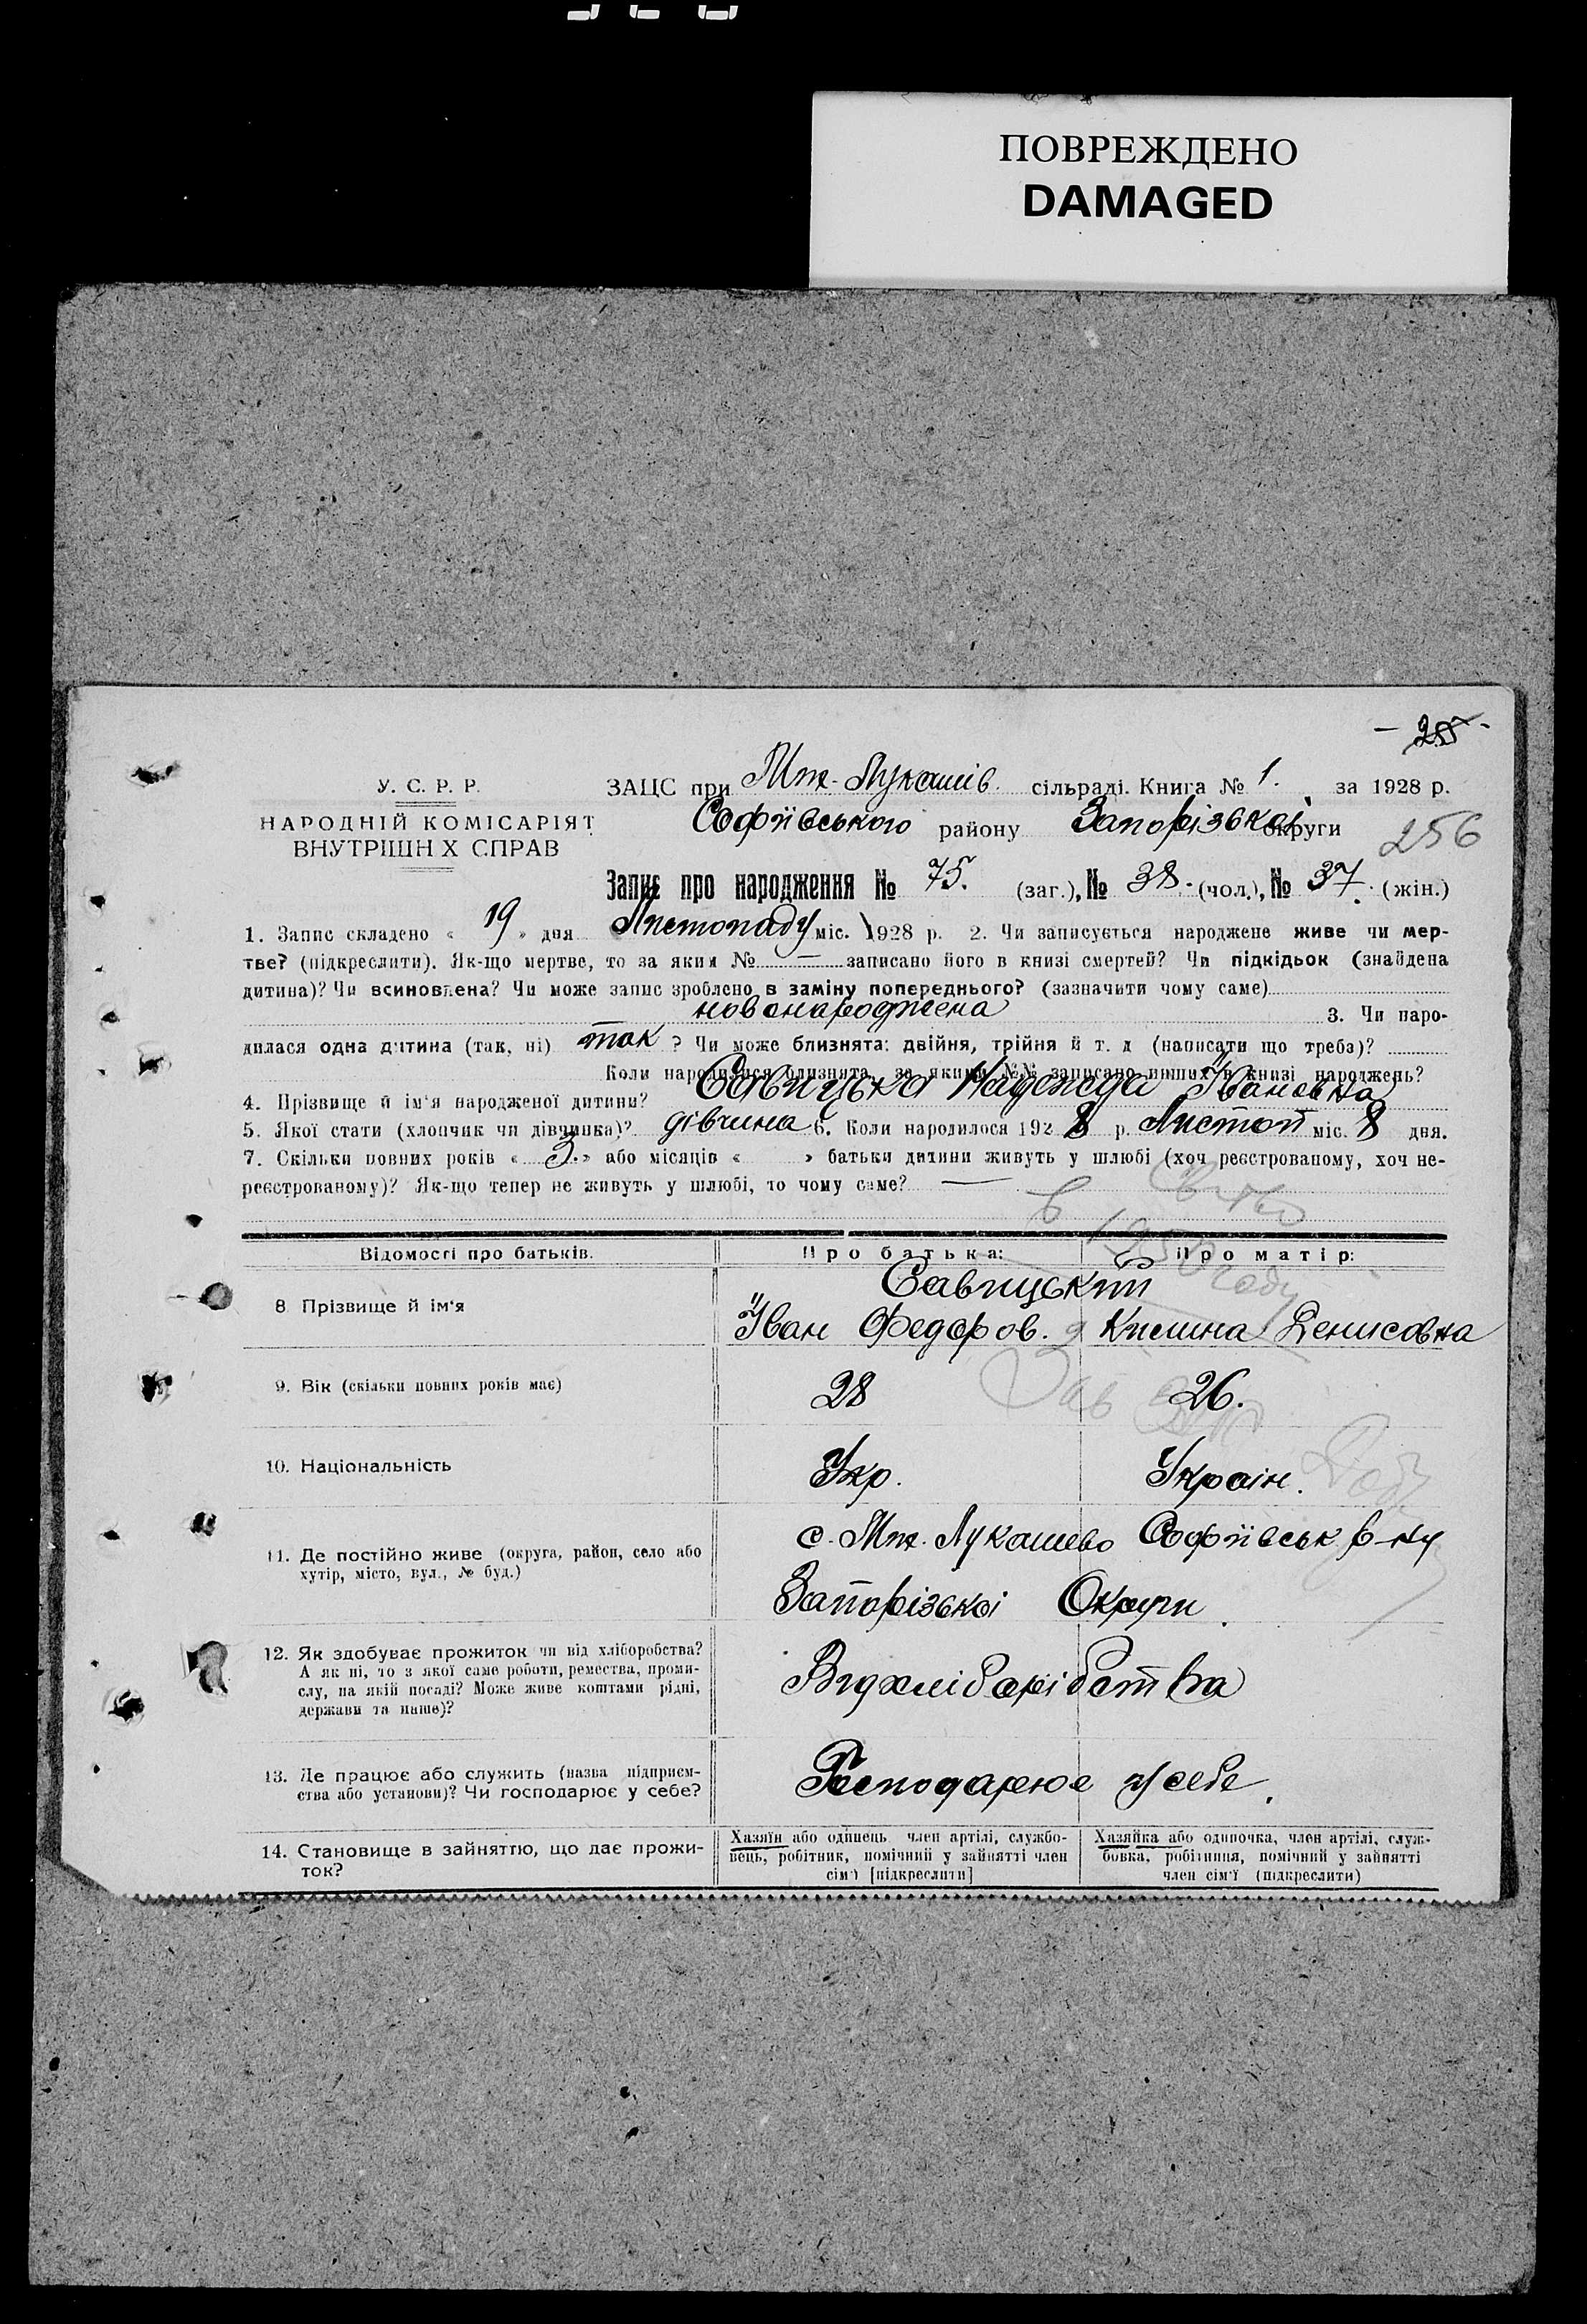 ПОВРЕЖДЕНО
DAMAGED
- 255 -
У. С. Р. Р.
НАРОДНІЙ КОМІСАРІЯТ
ВНУТРІШН Х СПРАВ
ЗАЦС при Мих-Лукашів. сільраді. Книга № 1. за 1928 р.
Софіївського району Запорізької округи
256
Запис про народження № 75. (заг.), № 38. (чол.), № 37. (жін.)
1. Запис складено « 19 » дня Листопаду міс. 1928 р. 2. Чи записується народжене живе чи мер-
тве? (підкреслити). Як-що мертве, то за яким № — записано його в книзі смертей? Чи підкідьок (знайдена
дитина)? Чи всиновлена? Чи може запис зроблено в заміну попереднього? (зазначити чому саме)
новонароджена 3. Чи наро-
дилася одна дитина (так, ні) так ? Чи може близнята: двійня, трійня й т. д (написати що треба)?
Коли народилися близнята, за якими №№ записано инших в книзі народжень?
4. Прізвище й ім'я народженої дитини? Савицька Надежда Івановна
5. Якої стати (хлопчик чи дівчинка)? дівчина 6. Коли народилося 1928 р. Листоп міс. 8 дня.
7. Скільки повних років « 3. » або місяців « » батьки дитини живуть у шлюбі (хоч реєстрованому, хоч не-
реєстрованому)? Як-що тепер не живуть у шлюбі, то чому саме? —
Відомості про батьків. Про батька: Про матір:
8 Прізвище й ім'я
Савицький
Іван Федоров. Килина Денисовна
9. Вік (скільки повних років має) 28 26.
10. Національність Укр. Україн.
11. Де постійно живе (округа, район, село або
хутір, місто, вул., № буд.)
с. Мих. Лукашево Софіївськ р-ну
Запорізької Округи
12. Як здобуває прожиток чи від хліборобства?
А як ні, то з якої саме роботи, ремества, проми-
слу, на якій посаді? Може живе коштами рідні,
держави та инше)?
Видхліборібства
13. Де працює або служить (назва підприєм-
ства або установи)? Чи господарює у себе?
Господарює у себе.
14. Становище в зайняттю, що дає прожи-
ток?
Хазяїн або одинець член артілі, службо-
вець, робітник, помічний у зайнятті член
сім'ї [підкреслити]
Хазяйка або одиночка, член артілі, служ-
бовка, робітниця, помічний у зайнятті
член сім'ї (підкреслити)